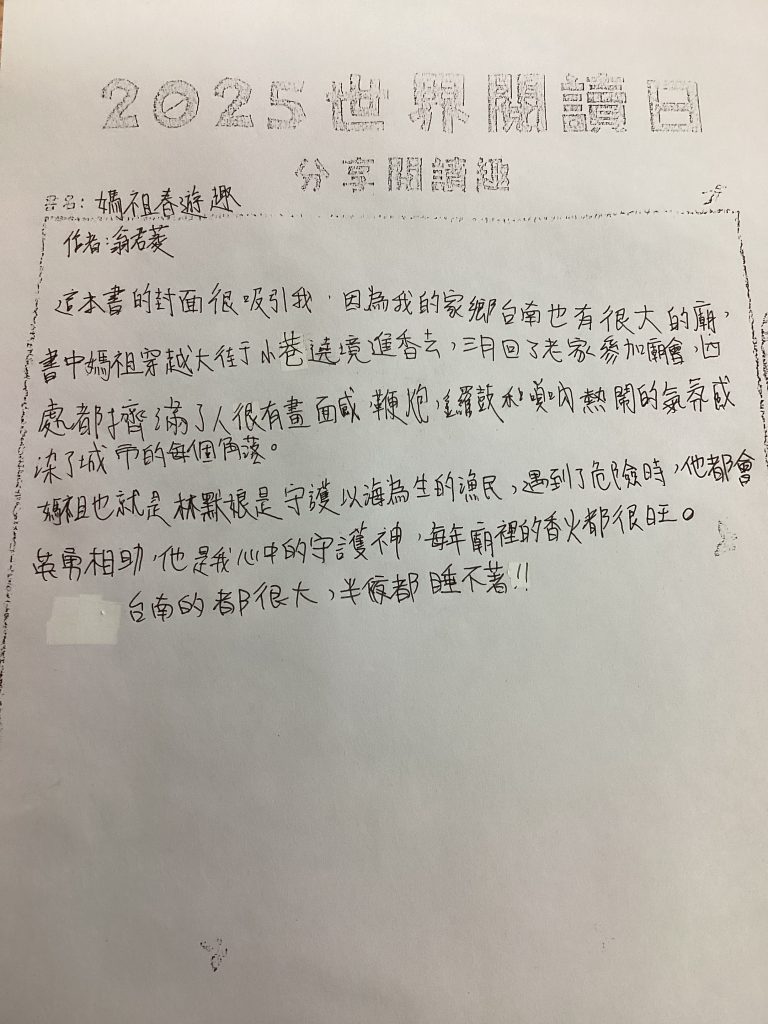 2025世界閱讀日
分享閱讀趣
書名：媽祖春遊趣
作者：翁若菱
這本書的封面很吸引我，因為我的家鄉台南也有很大的廟，
書中媽祖穿越大街于小巷遶境進香去，三月回了老家參加廟會，四
處都擠滿了人很有畫面感，鞭炮，鑼鼓和嗩吶熱鬧的氣氛感
染了城市的每個角落。
媽祖也就是林默娘是守護以海為生的漁民，遇到了危險時，他都會
英勇相助，他是我心中的守護神，每年廟裡的香火都很旺。
台南的都很大，半夜都睡不著!!